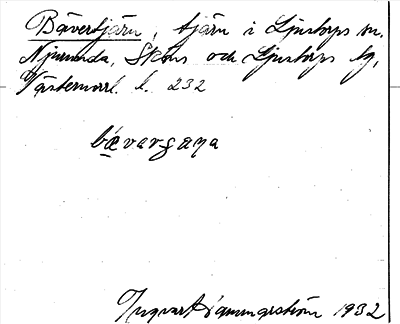 Bävertjärn, tjärn i Ljustorps sn.
Njurunda, Sköns och Ljustorps tg,
Västernorrl. l. 232
bǽvargaŋa
Ingvar Hammarström 1932